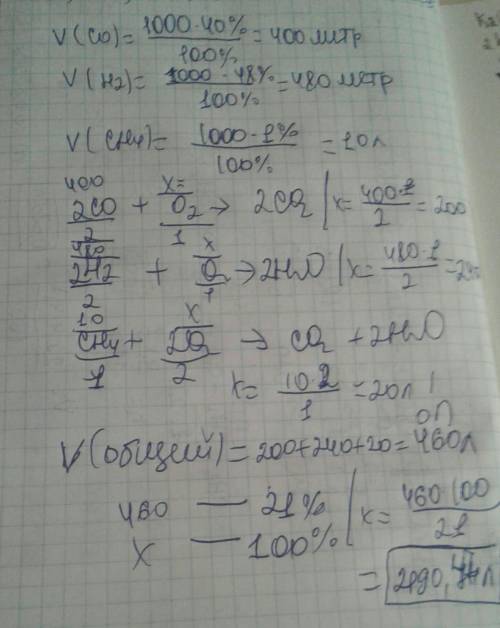 V(CO)= 1000·40% / 100% = 400 литр
V(H2)= 1000·48% / 100% = 480 литр
V(CH4)= 1000·1% / 100% = 10л
400 x=
2CO + O2 → 2CO2 | x= 400·1 / 2 = 200
2 1
480 x
2H2 + O2 → 2H2O | x= 480·1 / 2 = 240
2 1
10 x
CH4 + 2O2 → CO2 + 2H2O
1 2
x= 10·2 / 1 = 20л
V(общий)= 200+240+20= 460л
460 — 21%
x — 100% | x= 460·100 / 21
= 2190,4л